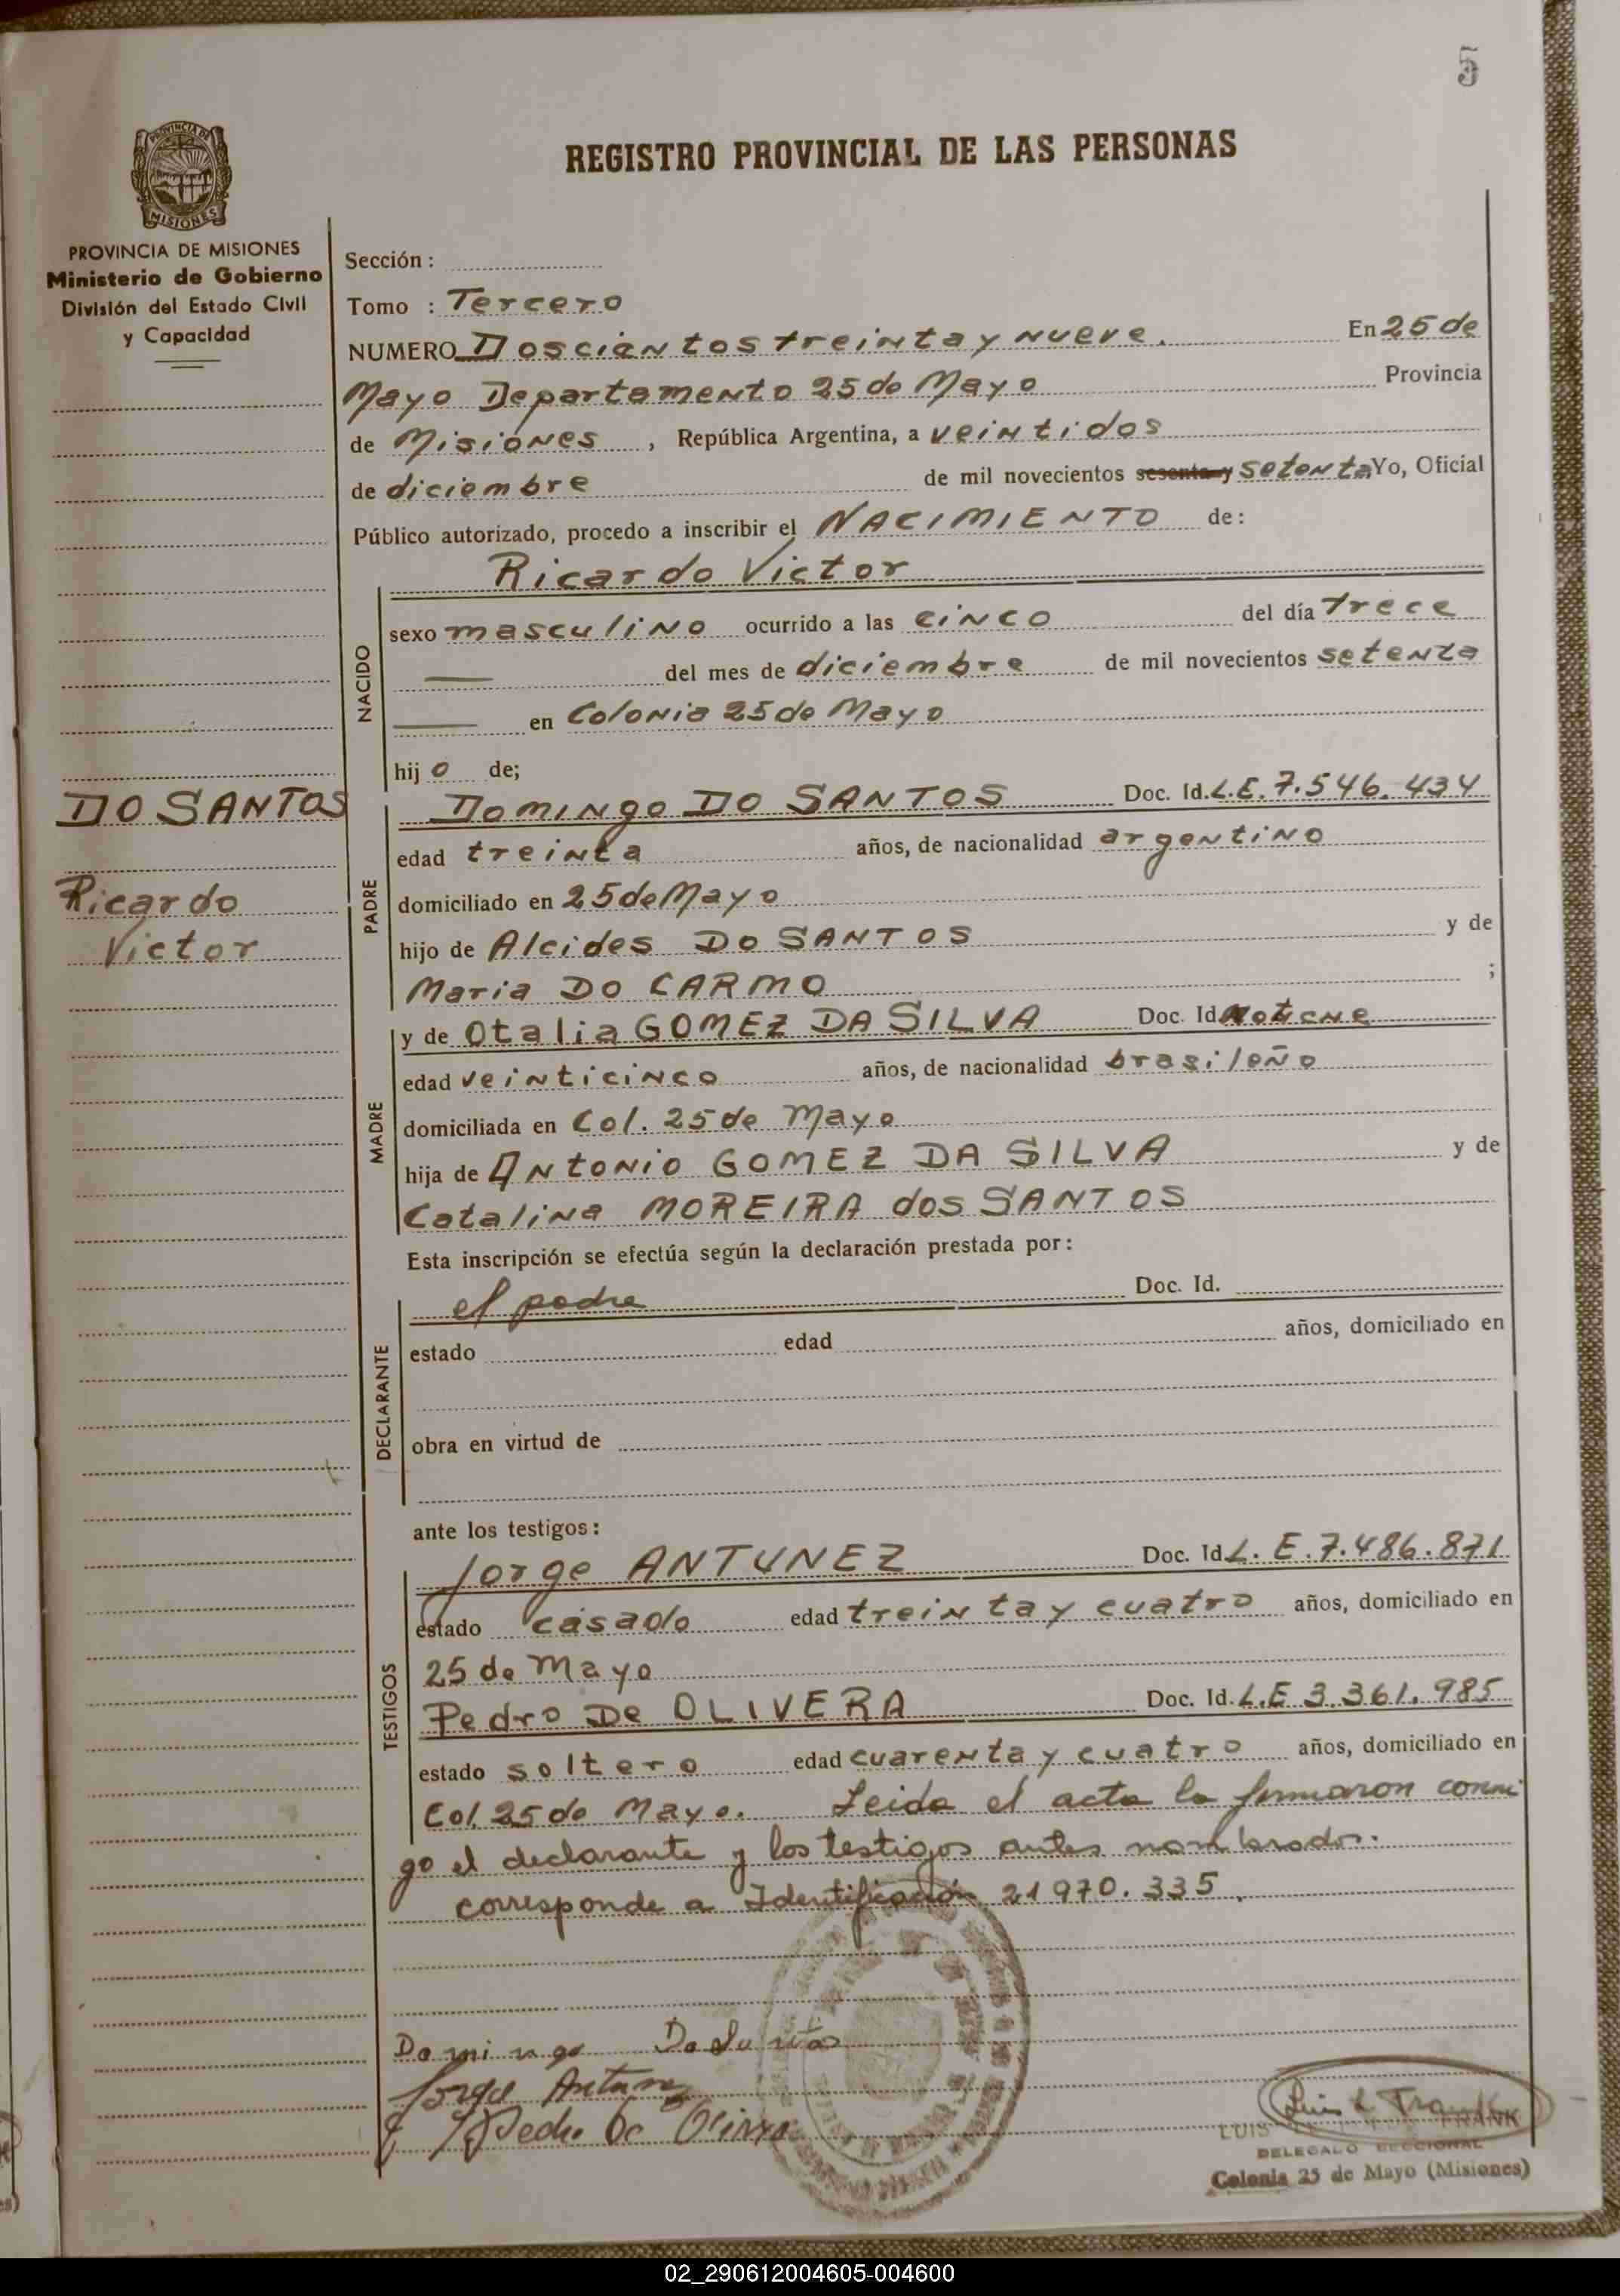 5
PROVINCIA DE
MISIONES
REGISTRO PROVINCIAL DE LAS PERSONAS
PROVINCIA DE MISIONES
Ministerio de Gobierno
División del Estado Civil
y Capacidad
DO SANTOS
Ricardo
Victor
Sección :
Tomo : Tercero
NUMERO Doscientos treinta y nueve. En 25 de
Mayo Departamento 25 de Mayo Provincia
de Misiones , República Argentina, a veintidos
de diciembre de mil novecientos sesenta y setenta Yo, Oficial
Público autorizado, procedo a inscribir el NACIMIENTO de:
Ricardo Victor
NACIDO
sexo masculino ocurrido a las cinco del día trece
— del mes de diciembre de mil novecientos setenta
— en Colonia 25 de Mayo
hij o de;
PADRE
Domingo DO SANTOS Doc. Id. L.E. 7.546.434
edad treinta años, de nacionalidad argentino
domiciliado en 25 de Mayo
hijo de Alcides DO SANTOS y de
Maria DO CARMO ;
MADRE
y de Otalia GOMEZ DA SILVA Doc. Id No tiene
edad veinticinco años, de nacionalidad brasileño
domiciliada en Col. 25 de Mayo
hija de Antonio GOMEZ DA SILVA y de
Catalina MOREIRA dos SANTOS
Esta inscripción se efectúa según la declaración prestada por:
DECLARANTE
el padre Doc. Id.
estado edad años, domiciliado en
obra en virtud de
ante los testigos:
TESTIGOS
Jorge ANTUNEZ Doc. Id L. E. 7.486.871
estado casado edad treinta y cuatro años, domiciliado en
25 de Mayo
Pedro De OLIVERA Doc. Id. L.E 3.361.985
estado soltero edad cuarenta y cuatro años, domiciliado en
Col. 25 de Mayo. Leida el acta la firmaron conmi
go el declarante y los testigos antes nombrados.
corresponde a Identificación 21970.335.
Domingo Do
Jorge
Pedro De
Luis
LUIS FRANK
DELEGADO SECCIONAL
Colonia 25 de Mayo (Misiones)
02_290612004605-004600